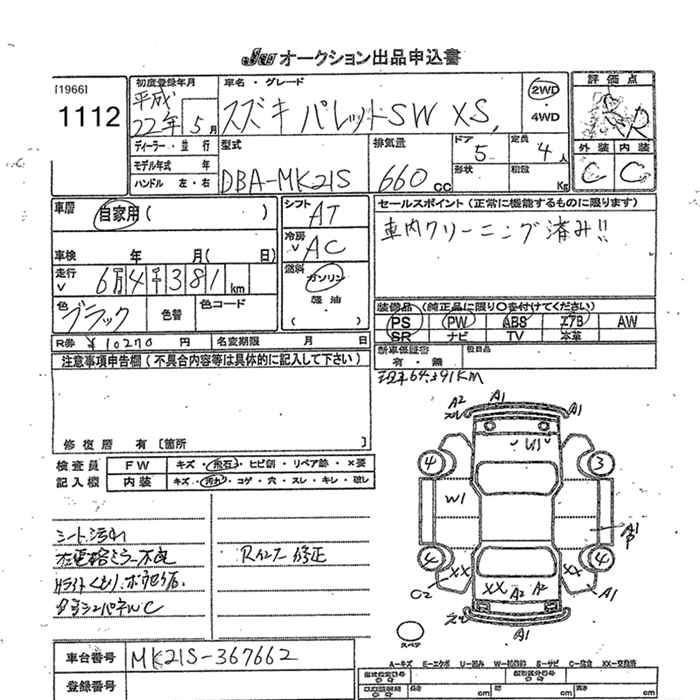 JU オークション出品申込書
[1966]
1112
初度登録年月
平成
22年 5月
ディーラー・並 行
モデル年式 年
ハンドル 左・右
車名・グレード
スズキ パレットSW XS
2WD
・4WD
型式
DBA-MK21S
排気量
660 CC
ドア
5
定員
4人
形状
積載
Kg
評価点
R
外装 内装
C C
車歴
自家用( )
車検 年 月( 日)
走行
6万4千381km
色
ブラック
色替
色コード
シフト
AT
冷房
AC
燃料
ガソリン
軽油
( )
セールスポイント(正常に機能するものに限ります)
車内クリーニング済み!!
装備品(純正品に限り○を付けてください)
PS PW ABS エアB AW
SR ナビ TV 本革
新車保証書
有・無
R券 ¥10270 円
名変期限 月 日
注意事項申告欄(不具合内容等は具体的に記入して下さい)
現车64,391KM
修復歴 有〔箇所 〕
検査員
記入欄
FW キズ・飛石・ヒビ割・リペア跡・×要
内装 キズ・汚れ・コゲ・穴・スレ・キレ・破レ
シート汚れ
左電格ミラー不良
Rインナー修正
A2 A1 A1
U1
4 3
W1
A1
4 4
XX XX
C2 A1
XX A2 A2
A1
スペア
A-キズ E-エクボ U-凹み W-補修跡 S-サビ C-腐食 XX-交換済
車台番号 MK21S-367662
登録番号
cm cm cm